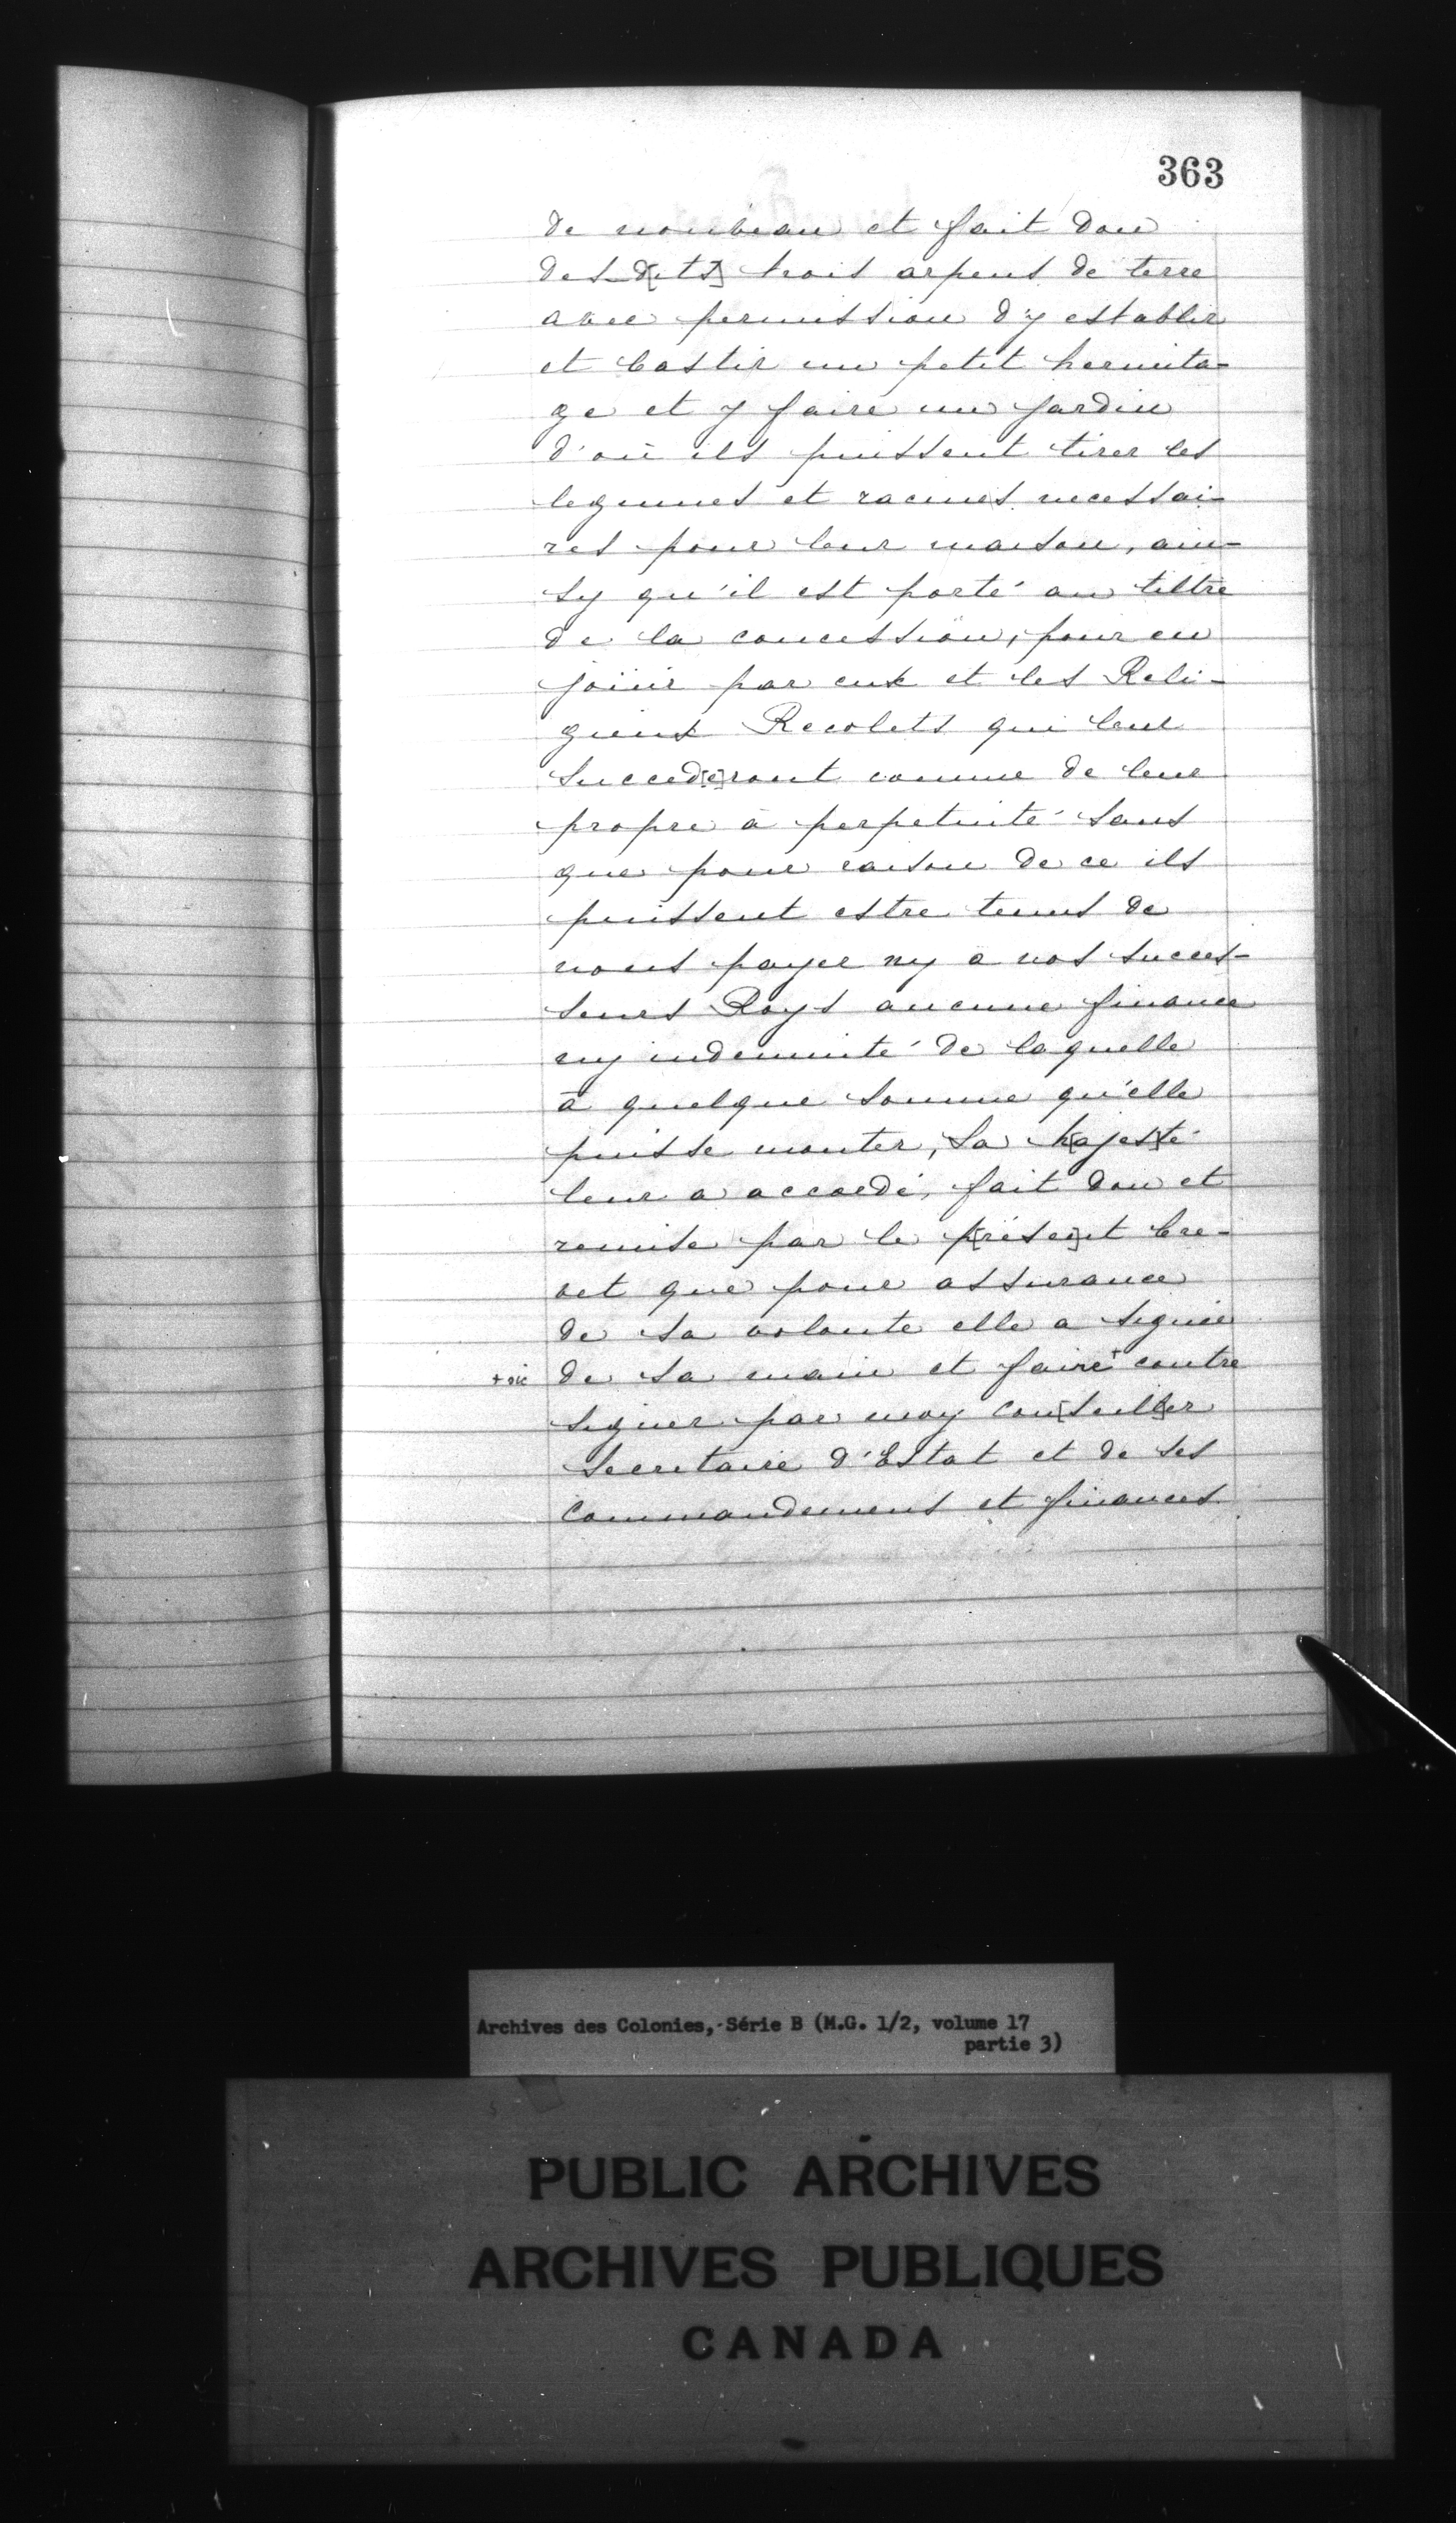 363
de nouveau et fait don
des d[its] trois arpens de terre
avec permission d'y establir
et bastir un petit hermita-
ge et y faire un jardin
d'où ils puissent tirer les
legumes et racines necessai-
res pour leur maison, ain-
sy qu'il est porté au tiltre
de la concession, pour en
joüir par eux et les Reli-
gieux Recolets qui leur
succed[e]ront comme de leur
propre à perpetuité sans
que pour raison de ce ils
puissent estre tenus de
nous payer ny a nos succes-
seurs Roys aucune finance
ny indemnité de laquelle
à quelque somme qu'elle
puisse monter, Sa M[ajes]té
leur a accordé, fait don et
remise par le p[résen]t bre-
vet que pour assurance
de sa volonte elle a signé
+sic de sa main et faire+ contre
signer par moy con[seill]er
Secretaire d'Estat et de ses
Commandemens et finances.
Archives des Colonies, Série B (M.G. 1/2, volume 17
partie 3)
PUBLIC ARCHIVES
ARCHIVES PUBLIQUES
CANADA